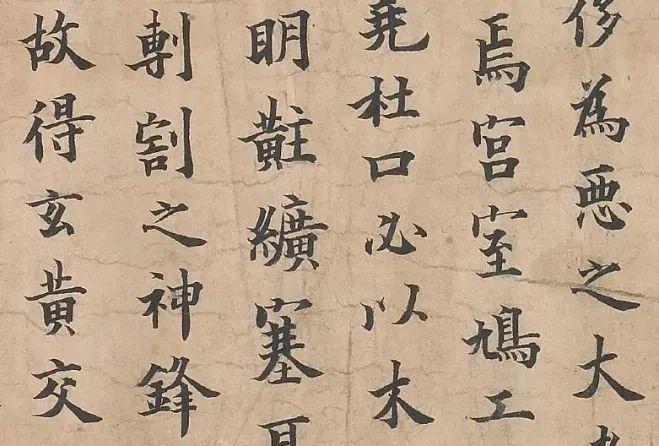 侈為惡之大
焉宮室鳩工
堯杜口必以木
明黈纊塞耳
剸割之神鋒
故得玄黄交